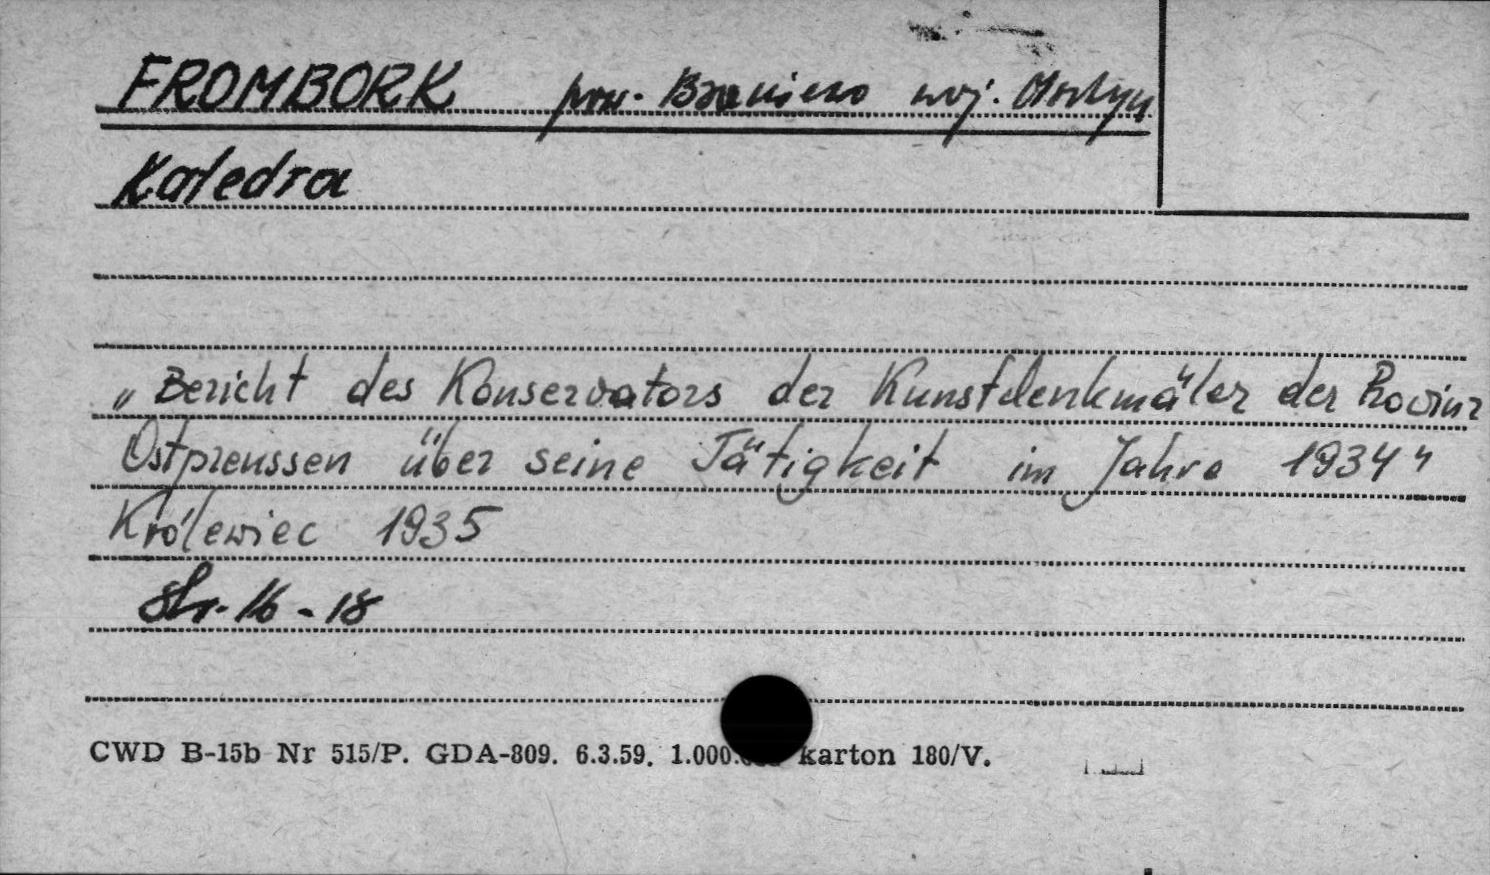 FROMBORK pow. Braniewo woj. Olsztyn
Katedra
„Bericht des Konservators der Kunstdenkmäler der Provinz
Ostpreussen über seine Tätigkeit im Jahre 1934"
Królewiec 1935
str. 16-18
CWD B-15b Nr 515/P. GDA-809. 6.3.59. karton 180/V.